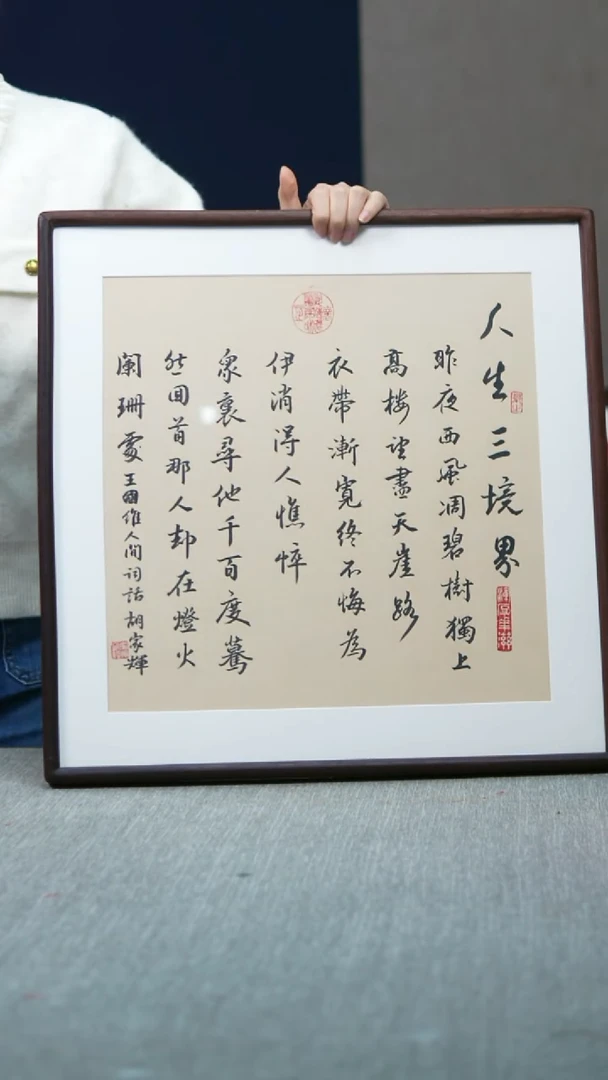 人生三境界
昨夜西風凋碧樹獨上
高樓望盡天崖路
衣帶漸寬終不悔為
伊消得人憔悴
眾裏尋他千百度驀
然回首那人却在燈火
闌珊處
王國維人間詞話胡家輝